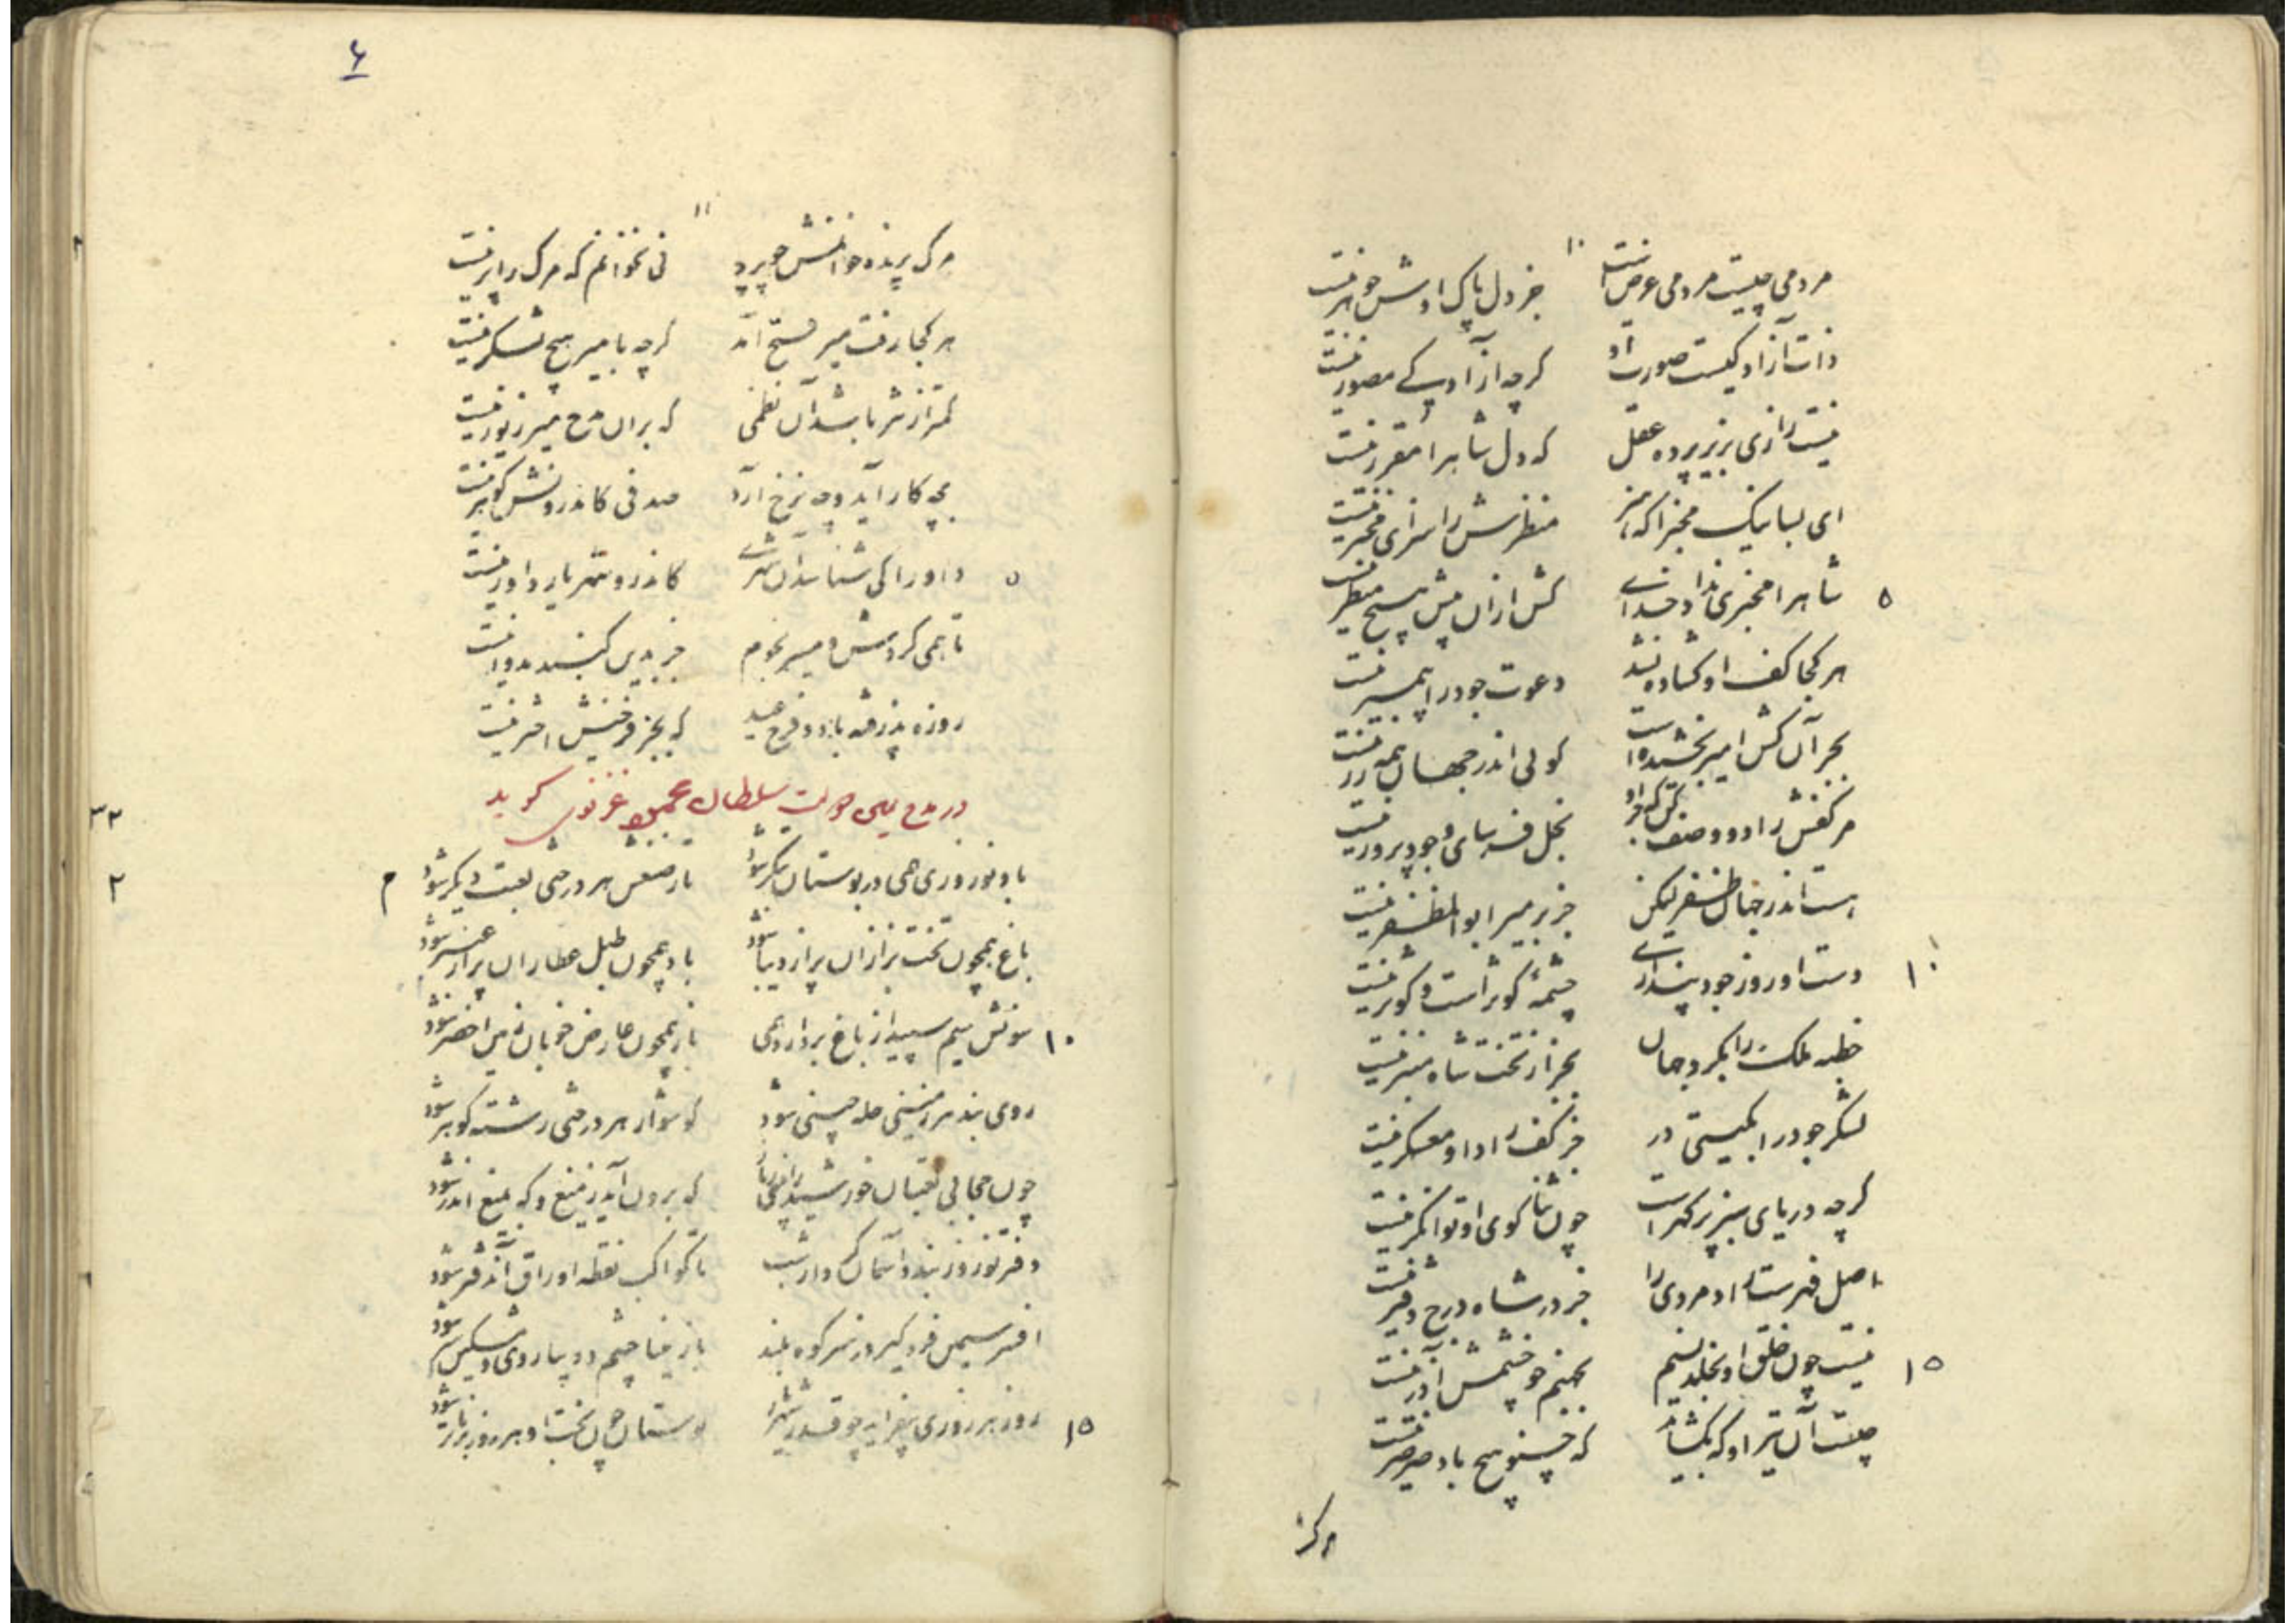 ۱۰
مردمی چیست مردمی عرض است جز دل پاک اوش جوهر نیست
ذات آزادگیست صورت او گرچه آزادگی مصور نیست
نیست رازی بزیر پرده عقل که دل شاه را مقرر نیست
ای بسا نیک مخبرا که همی منظرش را سزای مخبر نیست
۵ شاه را مخبری نداد خدای کش از آن بیش هیچ منظر نیست
هر کجا کف او گشاده نشد دعوت جود را پیمبر نیست
بجز آن کش امیر بخشیده است گوئی اندر جهان همه زر نیست
مر کفش را دو وصف بخل فرسای و جود پرور نیست
هست اندر جهان ظفر لیکن جز بر میر ابوالمظفر نیست
۱۰ دست او روز جود پنداری چشمهٔ کوثر است و کوثر نیست
خطبه ملک را بگرد جهان بجز از تخت شاه منبر نیست
لشکر جود را بگیتی در جز کف راد او معسکر نیست
گرچه دریای سبز پر گهر است چون ثناگوی او توانگر نیست
اصل فهرست رادمردی را جز در شاه درج دفتر نیست
۱۵ نیست چون خلق او بخلد نسیم بجهنم چو خشمش آذر نیست
چیست آن تیر او که بگشاید که چنو هیچ باد صرصر نیست
مرگ
۶
۱۱
مرگ پرنده خوانمش چو پرد نی نخوانم که مرگ را پر نیست
هر کجا رفت میر فتح آمد گرچه با میر هیچ لشکر نیست
کمتر از نثر باشد آن نظمی که بران مدح میر زیور نیست
بچه کار آید و چه نرخ آرد صدفی کاندرونش گوهر نیست
۵ داور را کی شناسد آن شهری کاندرو شهریار داور نیست
تا همی گردش و مسیر نجوم جز بدین گنبد مدور نیست
روزه پذرفته باد و فرخ عید که بجز فرخیش اختر نیست
در مدح یمین دولت سلطان محمود غزنوی گوید
۳۳
۲ باد نوروزی همی در بوستان بتگر شود تا ز صنعش هر درختی لعبت دیگر شود م
باغ همچون تخت بزازان پر از دیبا شود باد همچون طبل عطاران پر از عنبر شود
۱۰ سونش سیم سپید از باغ بردارد همی باز همچون عارض خوبان زمین اخضر شود
روی بند هر زمینی حله چینی شود گوشوار هر درختی رشته گوهر شود
چون حجابی لعبتان خورشید را بینی ز ناز که برون آید ز میغ و گه بمیغ اندر شود
دفتر نوروز بندد آسمان کردار شب تا کواکب نقطه اوراق آن دفتر شود
افسر سیمین فرو گیرد ز سر کوه بلند باز مینا چشم و دیبا روی و مشکین سر شود
۱۵ روز هر روزی بیفزاید چو قدر شهریار بوستان چون بخت او هر روز برناتر شود